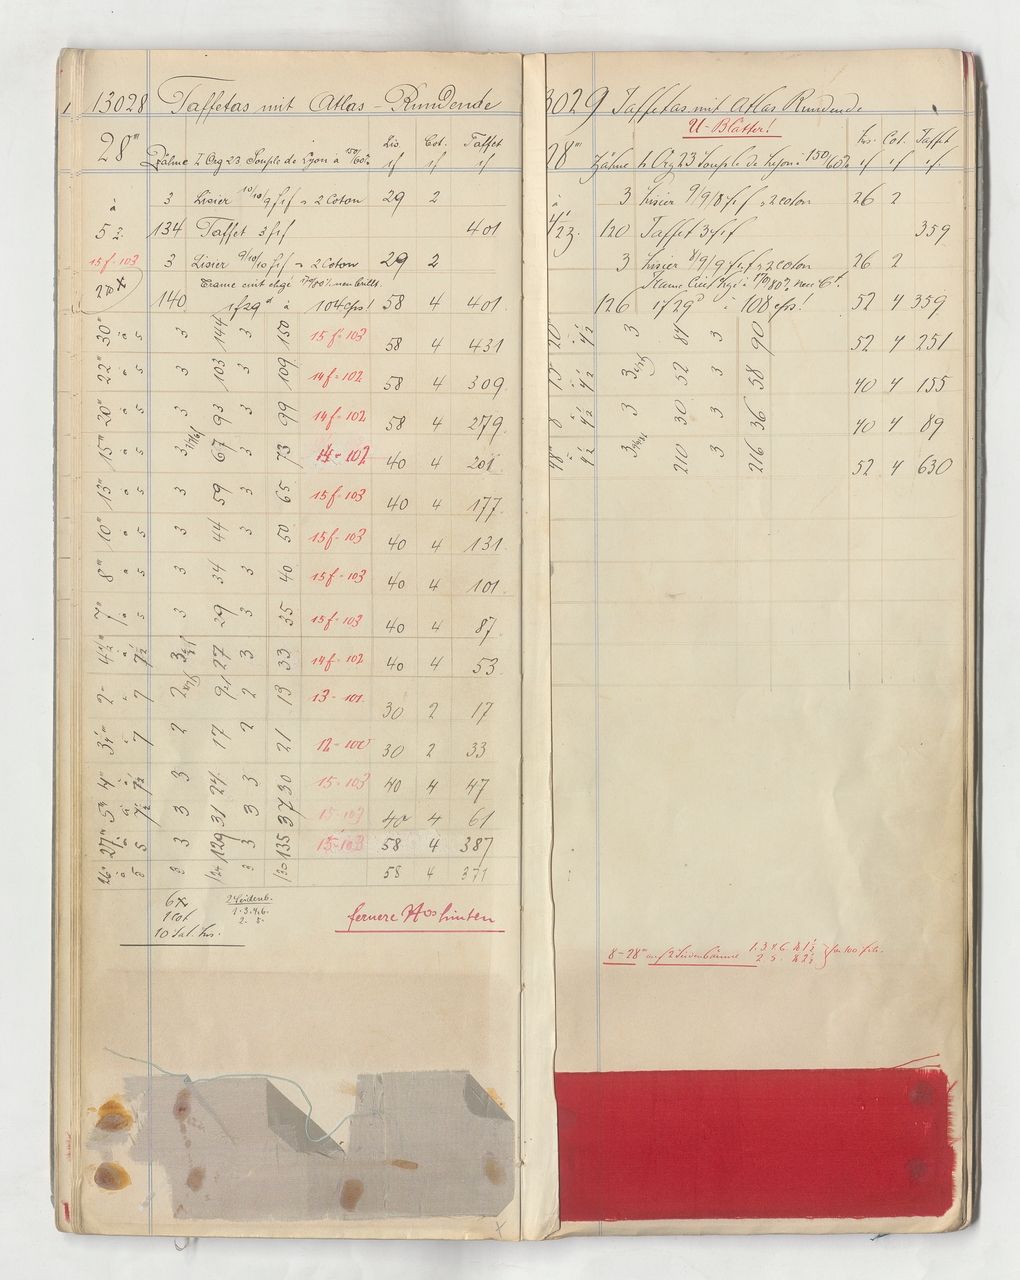 13028 Taffetas mit Atlas-Rundende
28''' Zähne Org 23 Souple de Lyon à 150/60% Lis. 1f Cot. 1f Taffet 1f
à 3 Lisier 10/10/9 fif = 2 Coton 29 2
5 z. 134 Taffet 3 fif 401
15 f-103 3 Lisier 9/10/10 fif = 2 Coton 29 2
Trame mit
140 1f 29d à 104 cps! 58 4 401
30''' à 5 3 144 3 150 15 f-103 58 4 431
22''' à 5 3 103 3 109 14 f-102 58 4 309
20''' à 5 3 93 3 99 14 f-102 58 4 279
15''' à 5 3 67 3 73 14-102 40 4 201
13''' à 5 3 59 3 65 15 f-103 40 4 177
10''' à 5 3 44 3 50 15 f-103 40 4 131
8''' à 5 3 34 3 40 15 f-103 40 4 101
7''' à 5 3 29 3 35 15 f-103 40 4 87
4½''' à 7½ 3 27 3 33 14 f-102 40 4 53
2''' à 7 2 9 2 13 13-101 30 2 17
à 7 2 17 2 21 12-100 30 2 33
4''' à 7½ 3 24 3 30 15-103 40 4 47
5''' à 7½ 3 31 3 37 15-103 40 4 61
27''' à 5 3 129 3 135 15-103 58 4 387
26''' à 5 3 124 3 130 58 4 371
1 Cot
1.3.4.6.
2. 5.
fernere Nos hinten
3029 Taffetas mit Atlas Rundende
U-Blätter!
28''' Zähne Org 23 Souple de Lyon à 150/60% Lis. 1f. Cot. 1f. Taffet 1f.
à 3 Lisier 9/9/8 fif = 2 coton 26 2
120 Taffet 3 fif 359
3 Lisier 8/9/9 fif = 2 coton 26 2
126 1f 29d à 108 cps! 52 4 359
20 à 4½ 3 84 3 90 52 4 251
13 à 4½ 3 52 3 58 40 4 155
8 à 4½ 3 30 3 36 40 4 89
48 à 4½ 3 210 3 216 52 4 630
8-28''' auf 2 Seidenbäume 1. 3. 4. 6. à 1½
2. 5. à 2½ für 100 Stb.